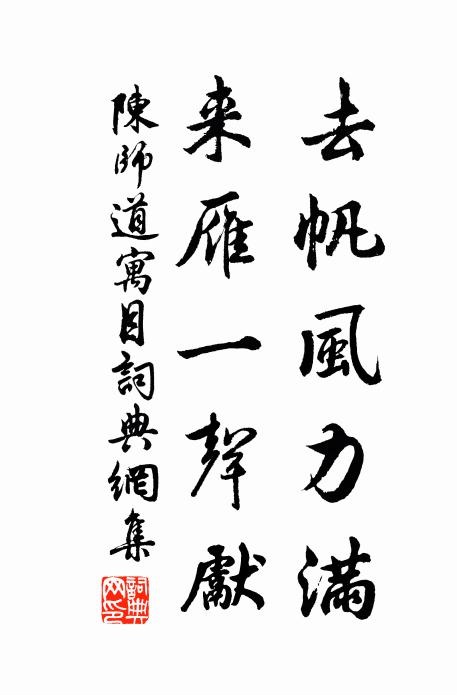 去帆風力滿
来雁一聲獻
陳師道寓目詞典網集
詞典网印